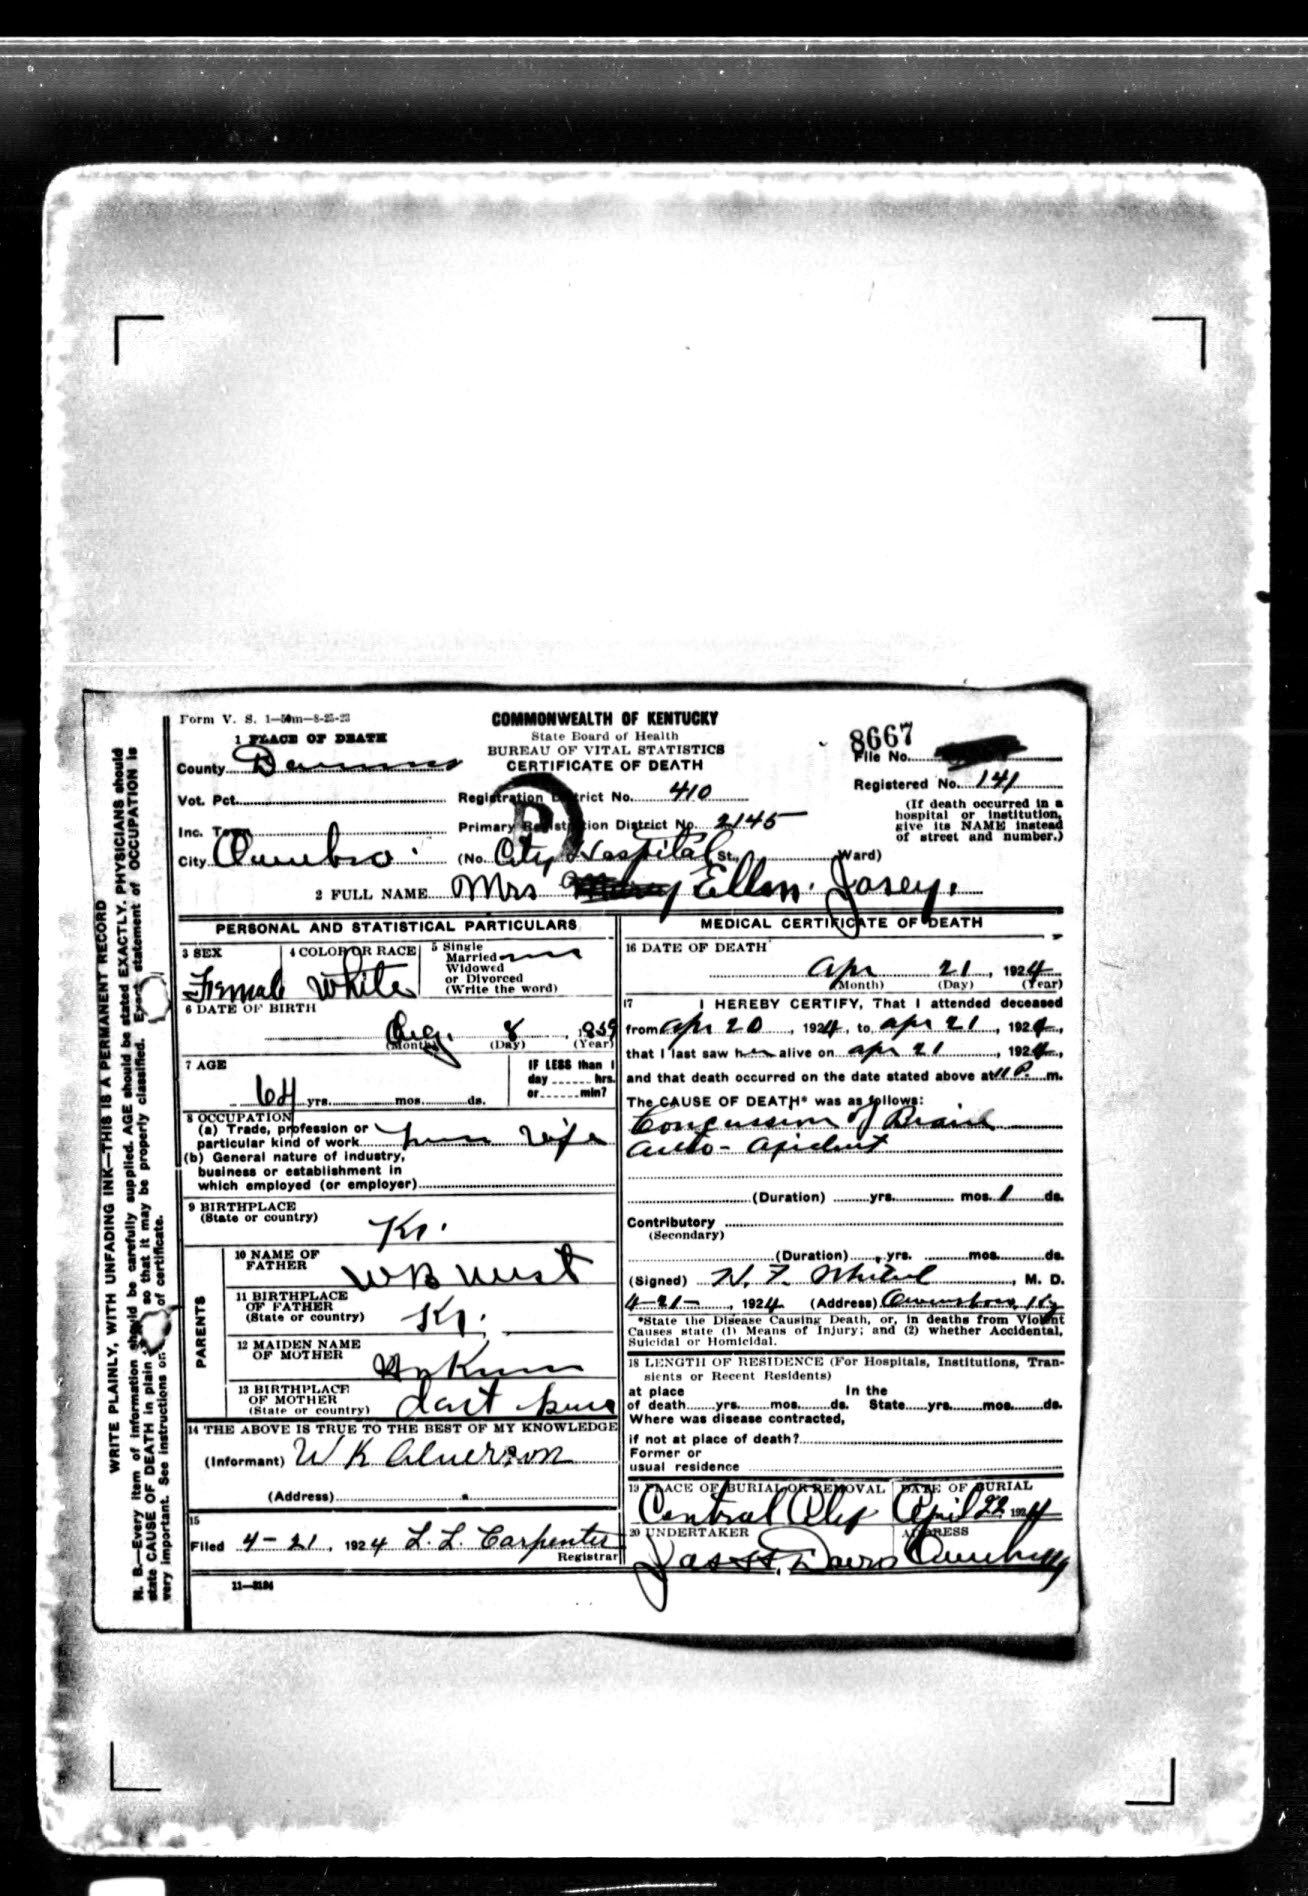 Form V. S. 1—50m—8-25-22
COMMONWEALTH OF KENTUCKY
State Board of Health
BUREAU OF VITAL STATISTICS
CERTIFICATE OF DEATH
1 PLACE OF DEATH
County
Vot. Pct.
Inc. Town
City
Registration District No. 410
Primary Registration District No. 2145
(No. City Hospital St., Ward)
8667
File No.
Registered No. 141
(If death occurred in a
hospital or institution,
give its NAME instead
of street and number.)
2 FULL NAME Mrs Ellen Josey.
PERSONAL AND STATISTICAL PARTICULARS
3 SEX
Female
4 COLOR OR RACE
White
5 Single
Married
Widowed
or Divorced
(Write the word)
6 DATE OF BIRTH
Aug. 8, 1859
(Month) (Day) (Year)
7 AGE
64 yrs. mos. ds.
IF LESS than 1
day hrs.
or min?
8 OCCUPATION
(a) Trade, profession or
particular kind of work
(b) General nature of industry,
business or establishment in
which employed (or employer)
9 BIRTHPLACE
(State or country)
Ky.
PARENTS
10 NAME OF
FATHER
W B West
11 BIRTHPLACE
OF FATHER
(State or country)
Ky.
12 MAIDEN NAME
OF MOTHER
13 BIRTHPLACE
OF MOTHER
(State or country)
14 THE ABOVE IS TRUE TO THE BEST OF MY KNOWLEDGE
(Informant) W K
(Address)
15
Filed 4-21, 1924 L. L. Carpenter
Registrar
11—3184
MEDICAL CERTIFICATE OF DEATH
16 DATE OF DEATH
Apr 21, 1924
(Month) (Day) (Year)
17 I HEREBY CERTIFY, That I attended deceased
from Apr 20, 1924, to Apr 21, 1924,
that I last saw her alive on Apr 21, 1924,
and that death occurred on the date stated above at 11 P. m.
The CAUSE OF DEATH* was as follows:
Concussion of Brain
Auto-
(Duration) yrs. mos. 1 ds.
Contributory
(Secondary)
(Duration) yrs. mos. ds.
(Signed) , M. D.
4-21-, 1924 (Address) Owensboro, Ky
*State the Disease Causing Death, or, in deaths from Violent
Causes state (1) Means of Injury; and (2) whether Accidental,
Suicidal or Homicidal.
18 LENGTH OF RESIDENCE (For Hospitals, Institutions, Tran-
sients or Recent Residents)
at place In the
of death yrs. mos. ds. State yrs. mos. ds.
Where was disease contracted,
if not at place of death?
Former or
usual residence
19 PLACE OF BURIAL OR REMOVAL
Central
DATE OF BURIAL
April 22 1924
20 UNDERTAKER
Jas H. Davis
ADDRESS
WRITE PLAINLY, WITH UNFADING INK—THIS IS A PERMANENT RECORD
N. B.—Every item of information should be carefully supplied. AGE should be stated EXACTLY. PHYSICIANS should
state CAUSE OF DEATH in plain so that it may be properly classified. Exact statement of OCCUPATION is
very important. See instructions on of certificate.